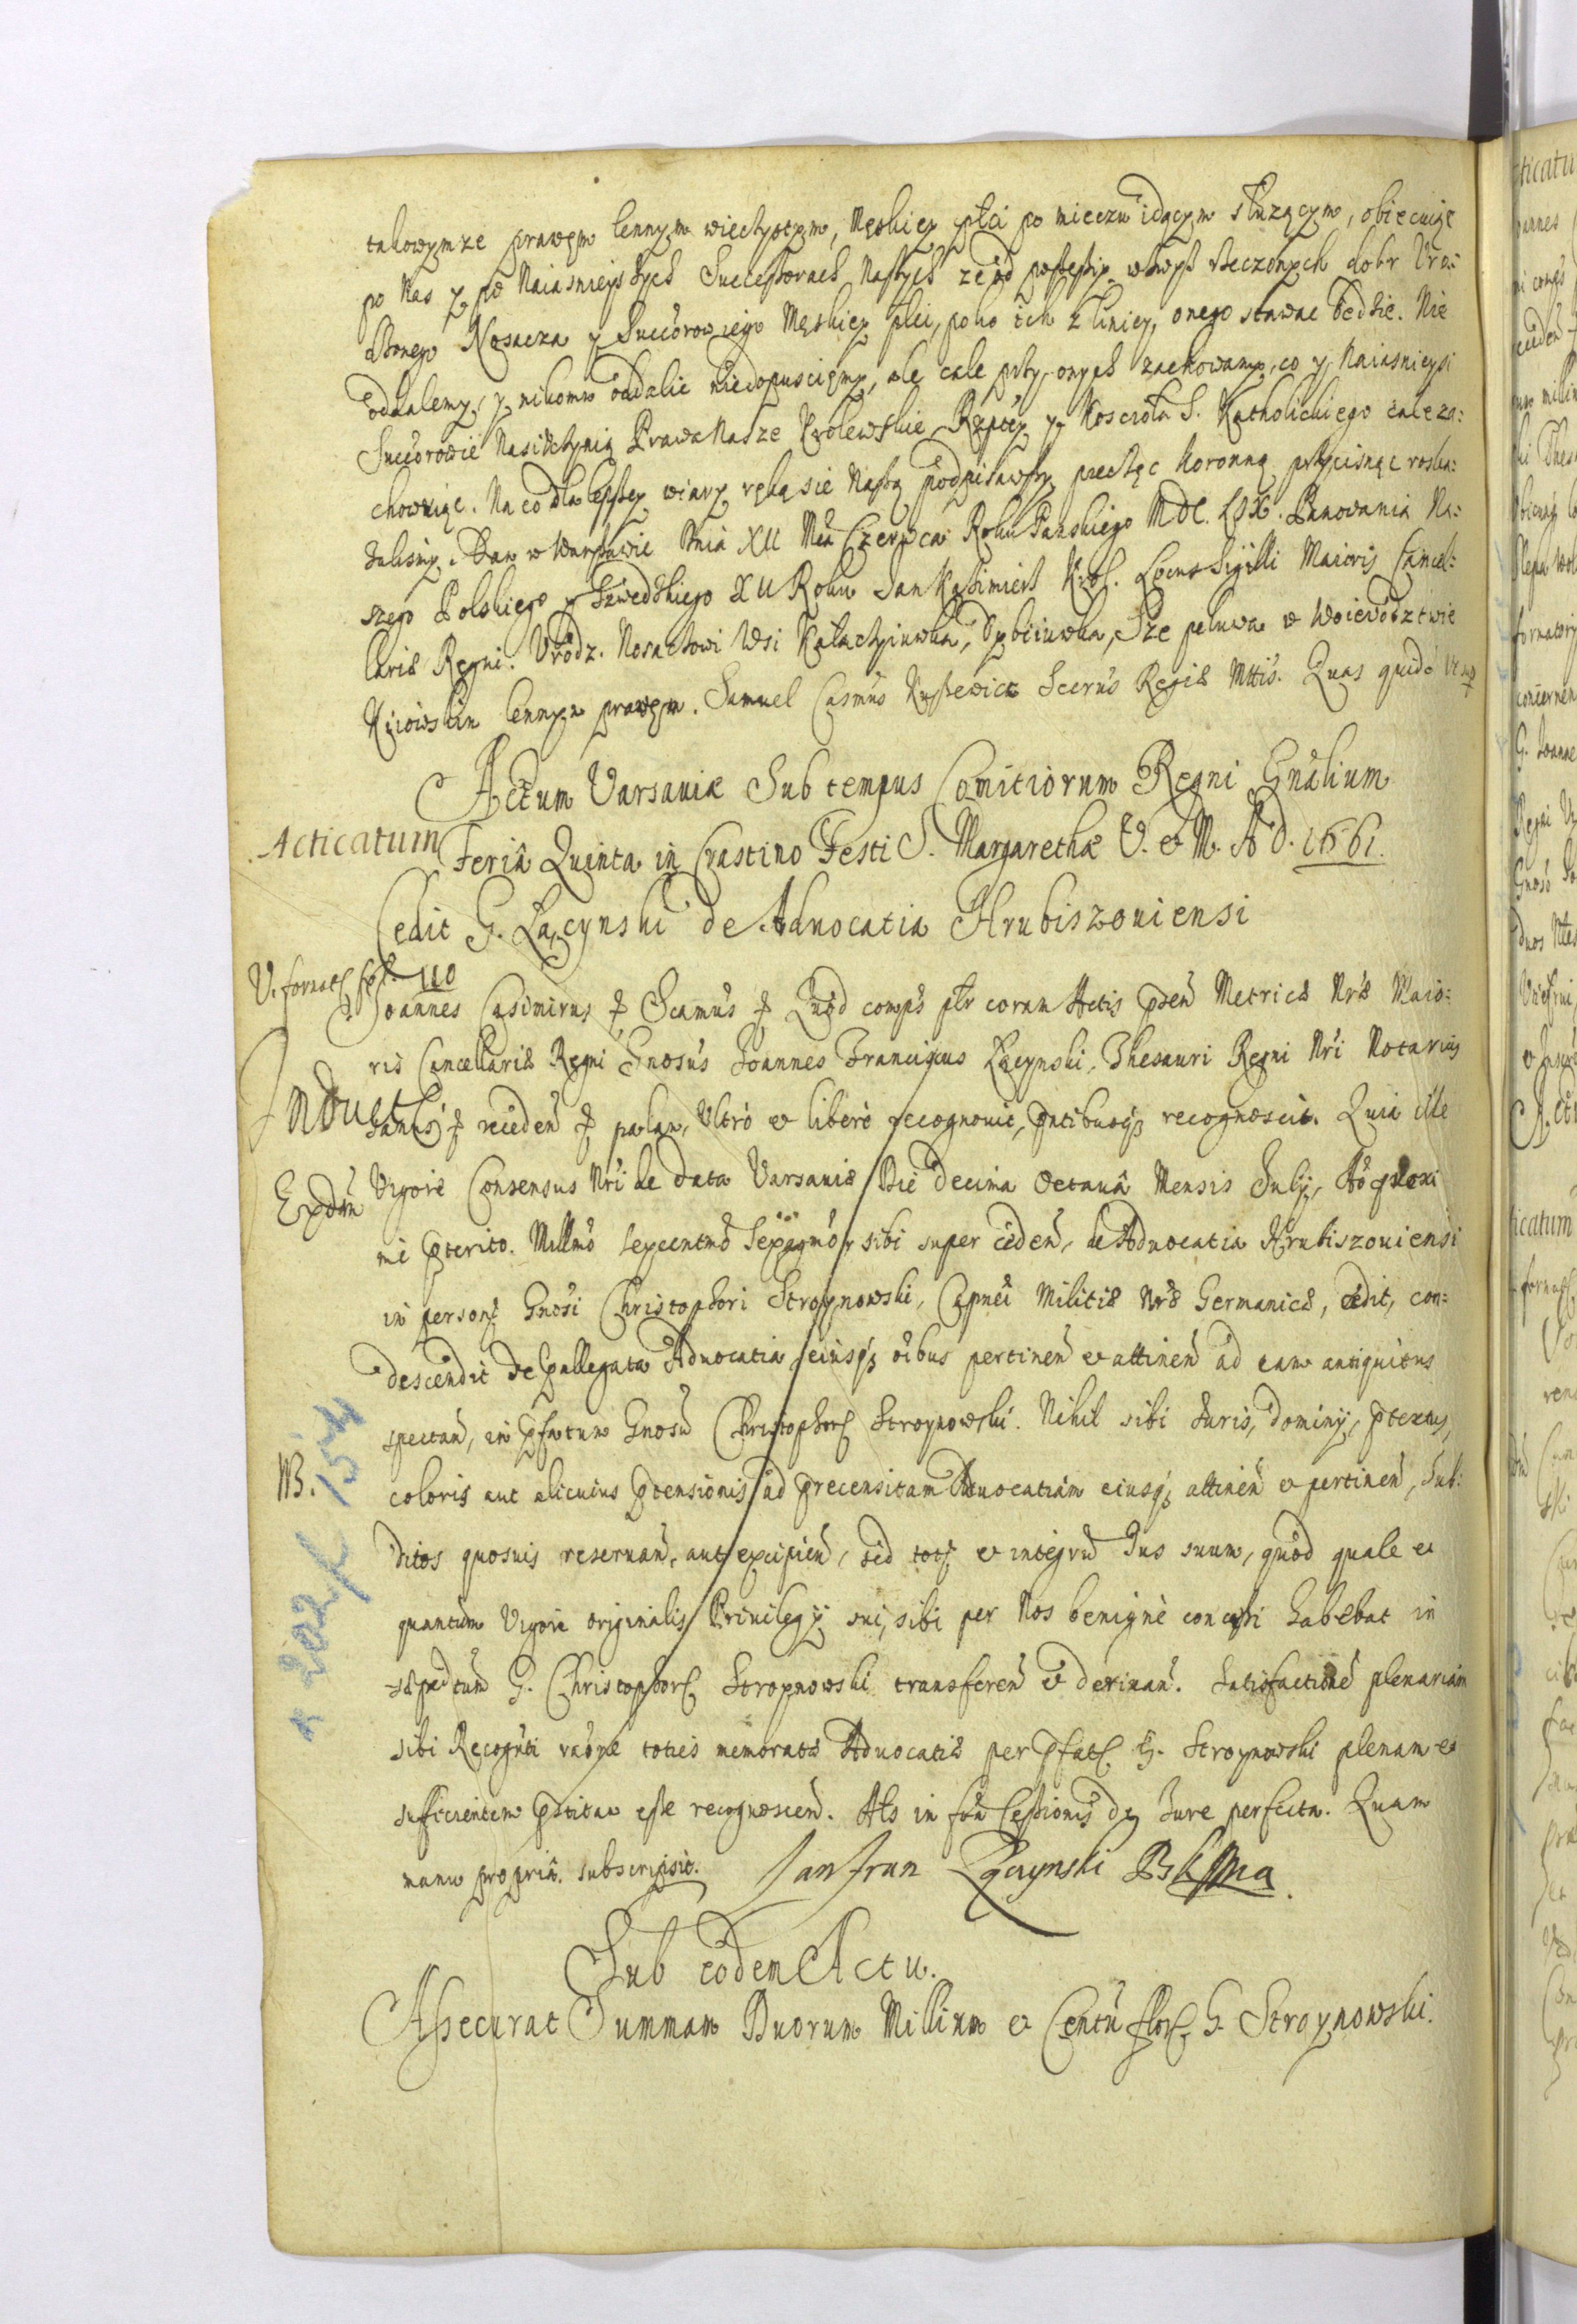 takowymze prawem lennym wieczystym, Męskiey płci po mieczu idącym słuzącym, obiecuiąc
po Nas y po Naiasnieyszych Successorach Naszych ze od possessiey wzwysz rzeczonych dobr Uro:
dzonego Nosacza y Succorow iego Męskiey płci, poko ich z liniey, onego stawac będzie. Nie
oddalemy, y nikomu oddalic niedopuscięmy, ale cale przy onych zachowamy, co y Naiasnieysi
Succorowie Nasi uczynią Prawa Nasze Krolewskie Rzptey y Koscioła S. Katholickiego cale za:
chowuiąc. Na co dla lepszey wiary ręką się Naszą podpisawszy pieczęc koronną przycisnąc roska:
zalismy. Dan w Warszawie Dnia XII Mca Czerwca Roku Panskiego MDC. LX. Panowania Na:
szego Polskiego y Szwedzkiego XII Roku Jan Kazimierz Krol. Locus Sigilli Maioris Cancel:
lariæ Regni. Urodz. Nosaczowi Wsi Kałaczyiuwka, Dybiiuwka, Szepeluwa w Woiewodztwie
Kiiowskim lennym prawem. Samuel Casmus Kuszewicz Secrus Regiæ Mttis. Quas quidē
Actum Varsaviæ Sub tempus Comitiorum Regni Gnalium
Acticatum Feriâ Quinta in Crastino Festi S. Margarethæ V. et M. A D. 1661.
Cedit G. Łączynski de Advocatia Hrubiszoviensi
V. fol. 110
Joannes Casimirus Scamus Quod comps ptr coram Actis pden Metricæ Nræ Maio:
ris Cancellariæ Regni Gnosus Joannes Franciscus Łączynski, Thesauri Regni Nri Notarius
Induct
Sanus reieden palam, Ultro et libere recognovit, pntibusq; recognoscit. Quia ille
Expdm Vigore Consensus Nri de data Varsaviæ Die Decima Octavâ Mensis Julij, Ao proxi
mi pterito. Millmo sexcentmo Sexagmo sibi super ceden, de Advocatia Hrubiszoviensi
in person Gnosi Christophori Stroynowski, Capnei Militiæ Næ Germanicæ, cedit, con:
descendit de pallegata Advocatia eiusq; oibus pertinen et attinen ad eam antiquitus
spectan, in pfatum Gnosu Christophor Stroynowski. Nihil sibi Juris, Dominij, ptextus,
NB. coloris aut alicuius ptensionis ad precensitam Advocatiam eiusq; attinen et pertinen, Sub:
ditos quosvis reservan, aut excipien, sed totu et integru Jus suum, quod quale et
quantum Vigore originalis Privilegij sui, sibi per Nos benigne concessi habebat in
sæpedtum G. Christophor Stroynowski transferen et derivan. Satisfactione plenariam
sibi Recognti raone toties memoratæ Advocatiæ per pfatu G. Stroynowski plenam et
sufficientem pstitam esse recognoscen. Als in foa Cessionis de Jure perfecta. Quam
manu propriâ subscripsit. Jan Fran Łączynski
Sub eodem Actu.
Assecurat Summam Duorum Millium et Centu flor G. Stroynowski.
154
202